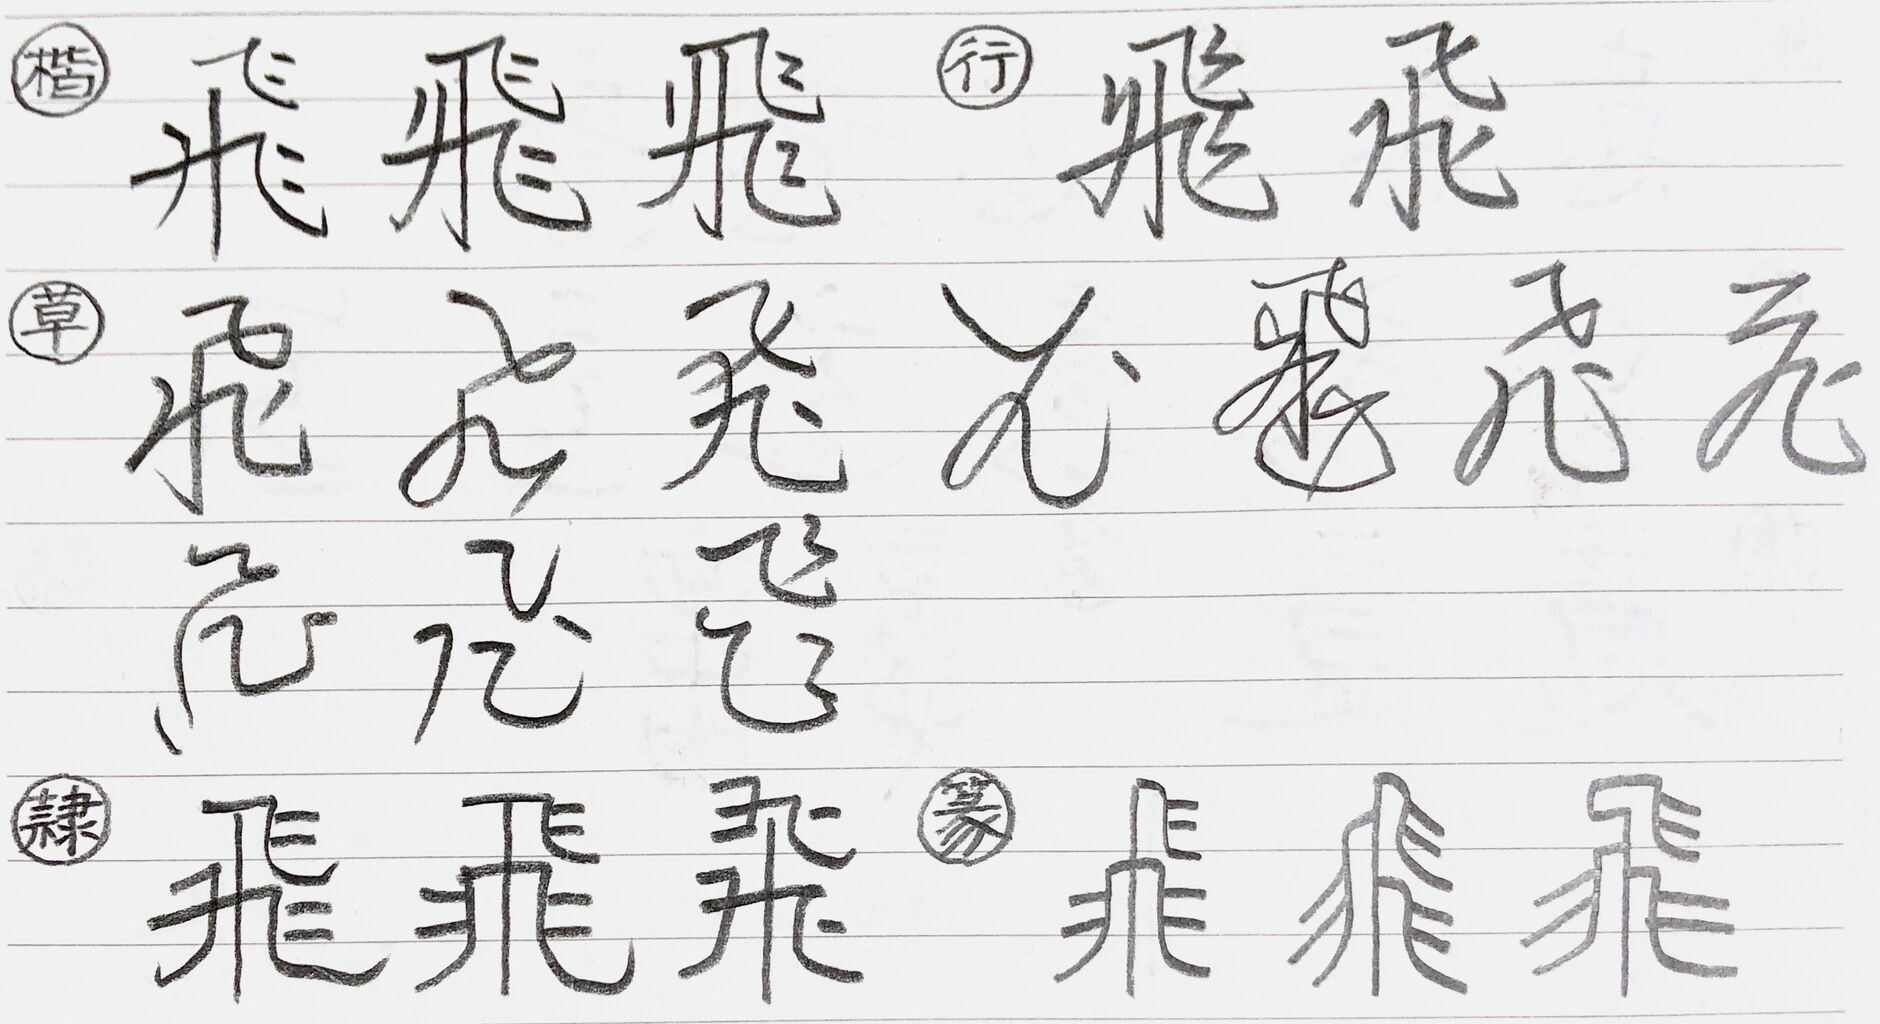 楷 飛 飛 飛 行 飛 飛
草 飛 飛 飛 飛 飛 飛 飛
飛 飛 飛
隷 飛 飛 飛 篆 飛 飛 飛